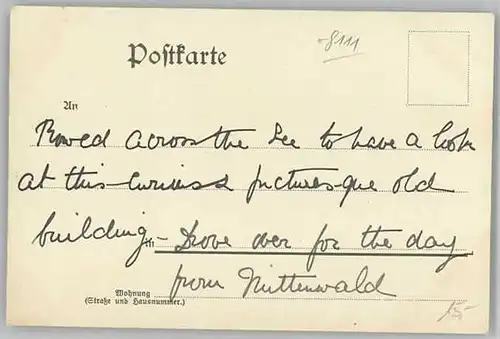 Postkarte
8111
An
Rowed across the See to have a look
at this curious & picturesque old
building –
in
Drove over for the day
from Mittenwald
Wohnung
(Straße und Hausnummer.)